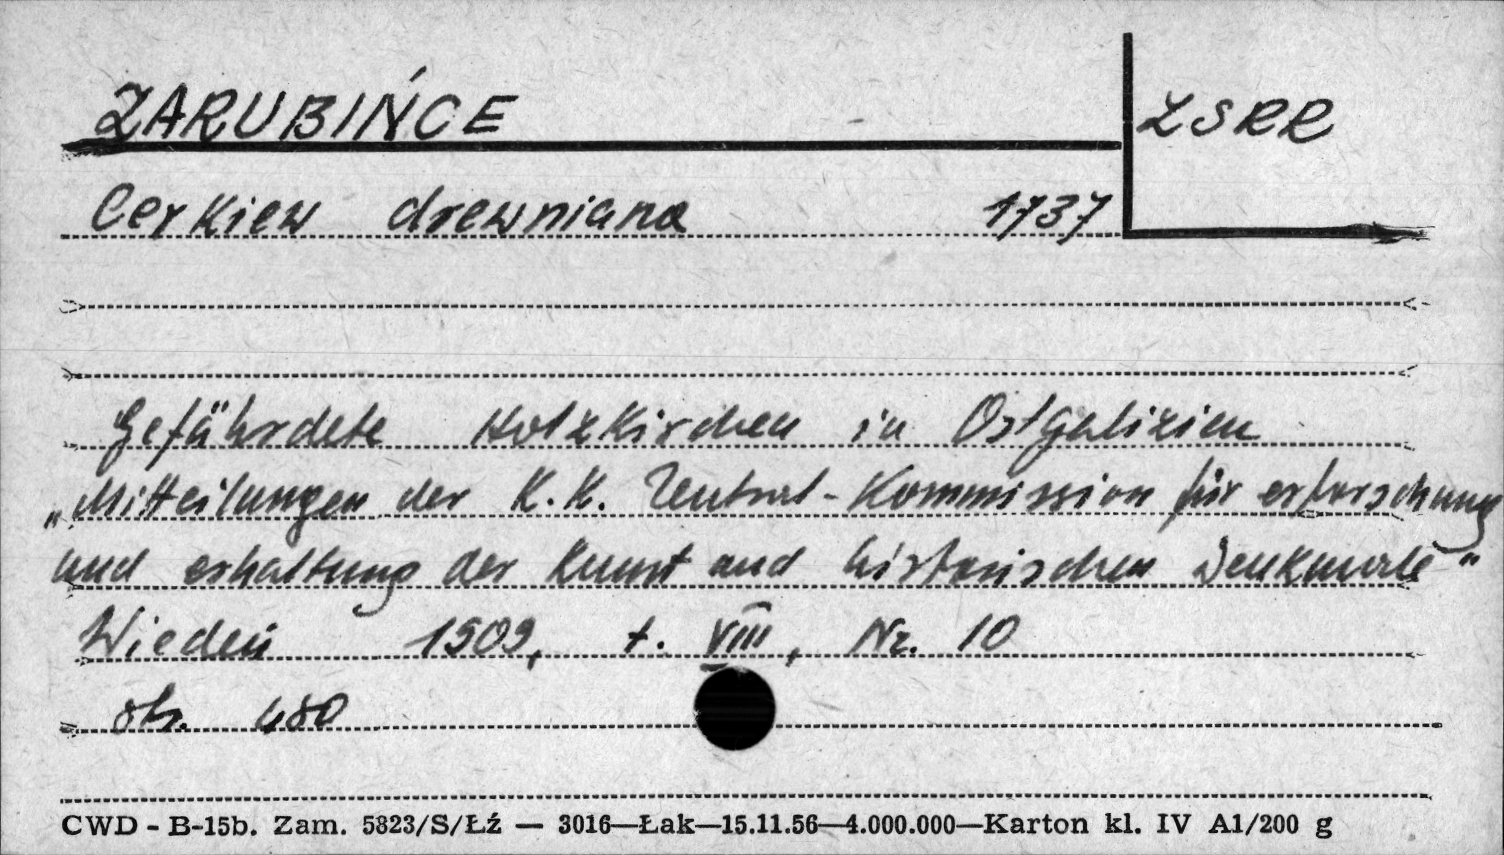 ZARUBIŃCE
ZSRR
Cerkiew drewniana 1737
Gefährdete Holzkirchen in Ostgalizien
„Mitteilungen der K.K. Zentral-Kommission für erforschung
und erhaltung der Kunst und historischen Denkmale"
Wiedeń 1909, t. VIII, Nr. 10
str. 480
CWD - B-15b. Zam. 5823/S/Łź — 3016—Łak—15.11.56—4.000.000—Karton kl. IV A1/200 g